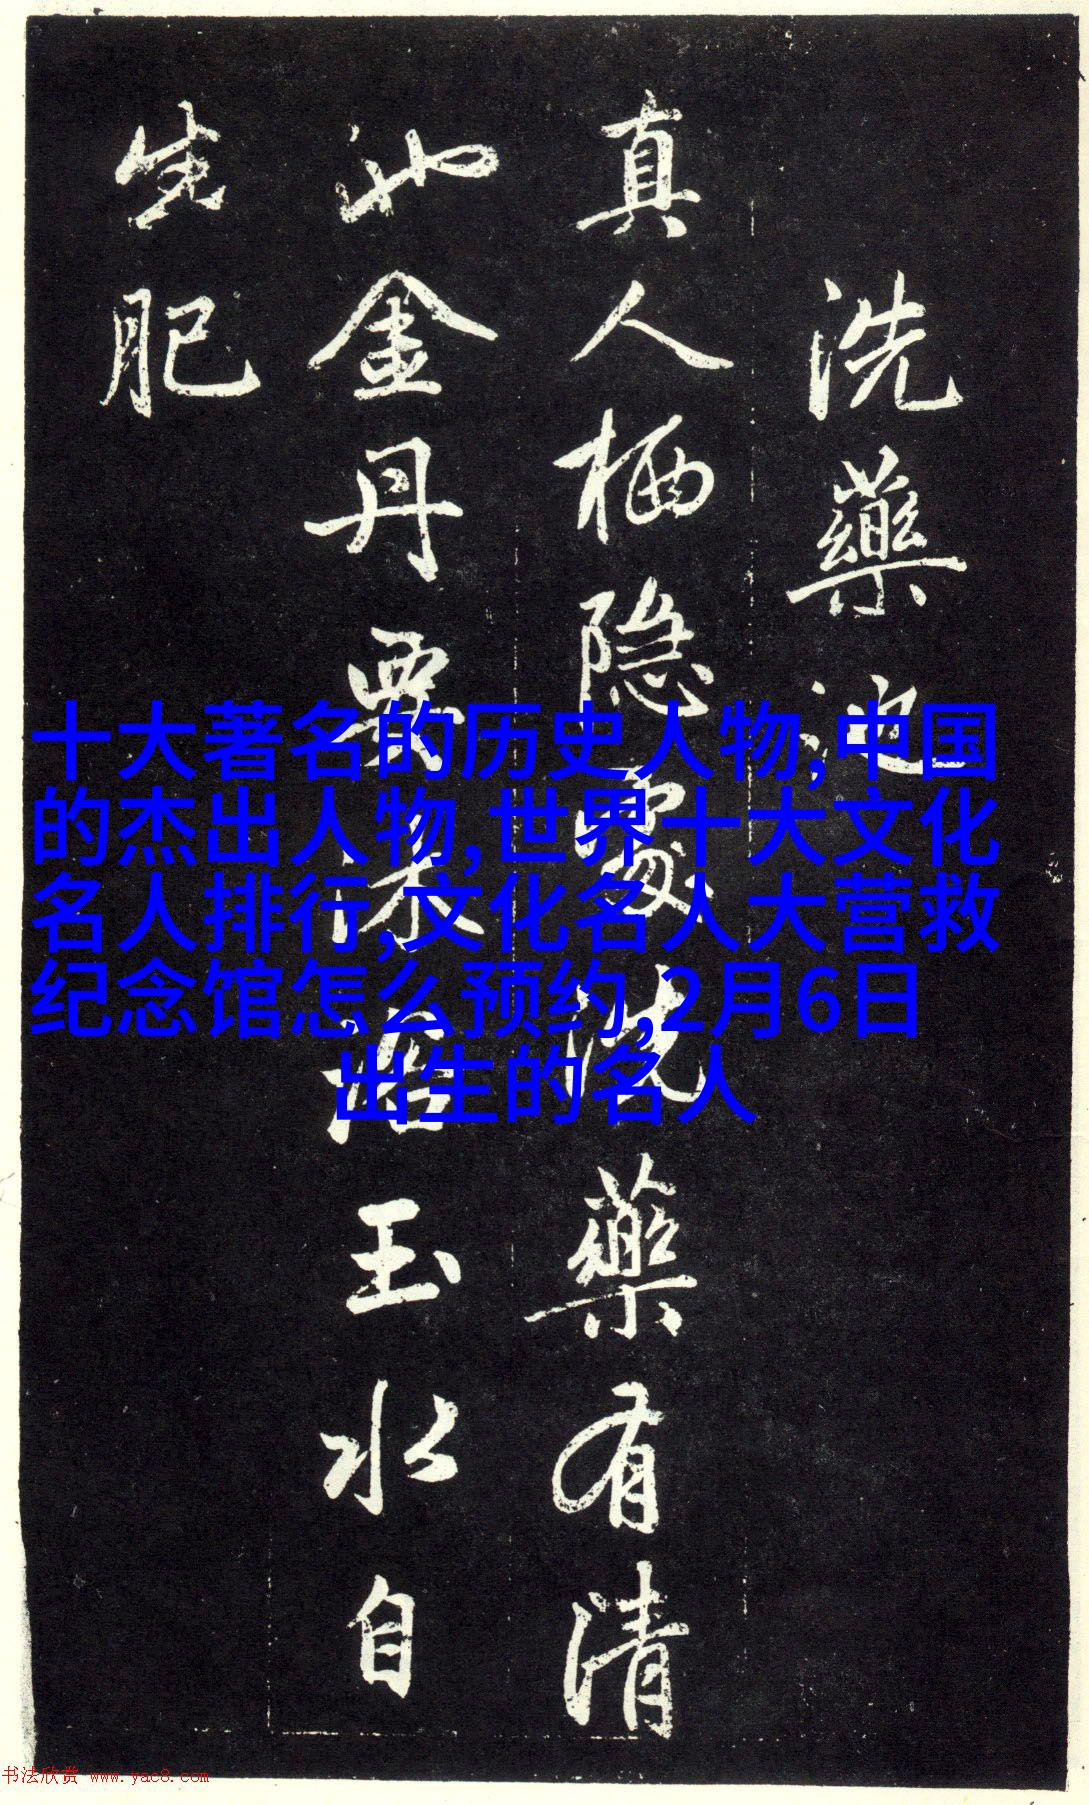 洗藥池
真人栖隐處洗藥有清
池金丹要沐浴玉水自
生肥
十大著名的历史人物,中国
的杰出人物,世界十大文化
名人排行,文化名人大营救
纪念馆怎么预约,2月6日
出生的名人
书法欣赏 www.yac8.com